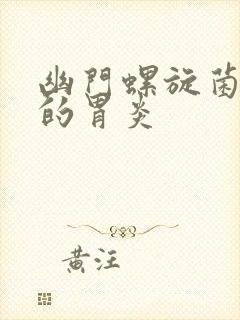 幽門螺旋菌
的胃炎
黃汪